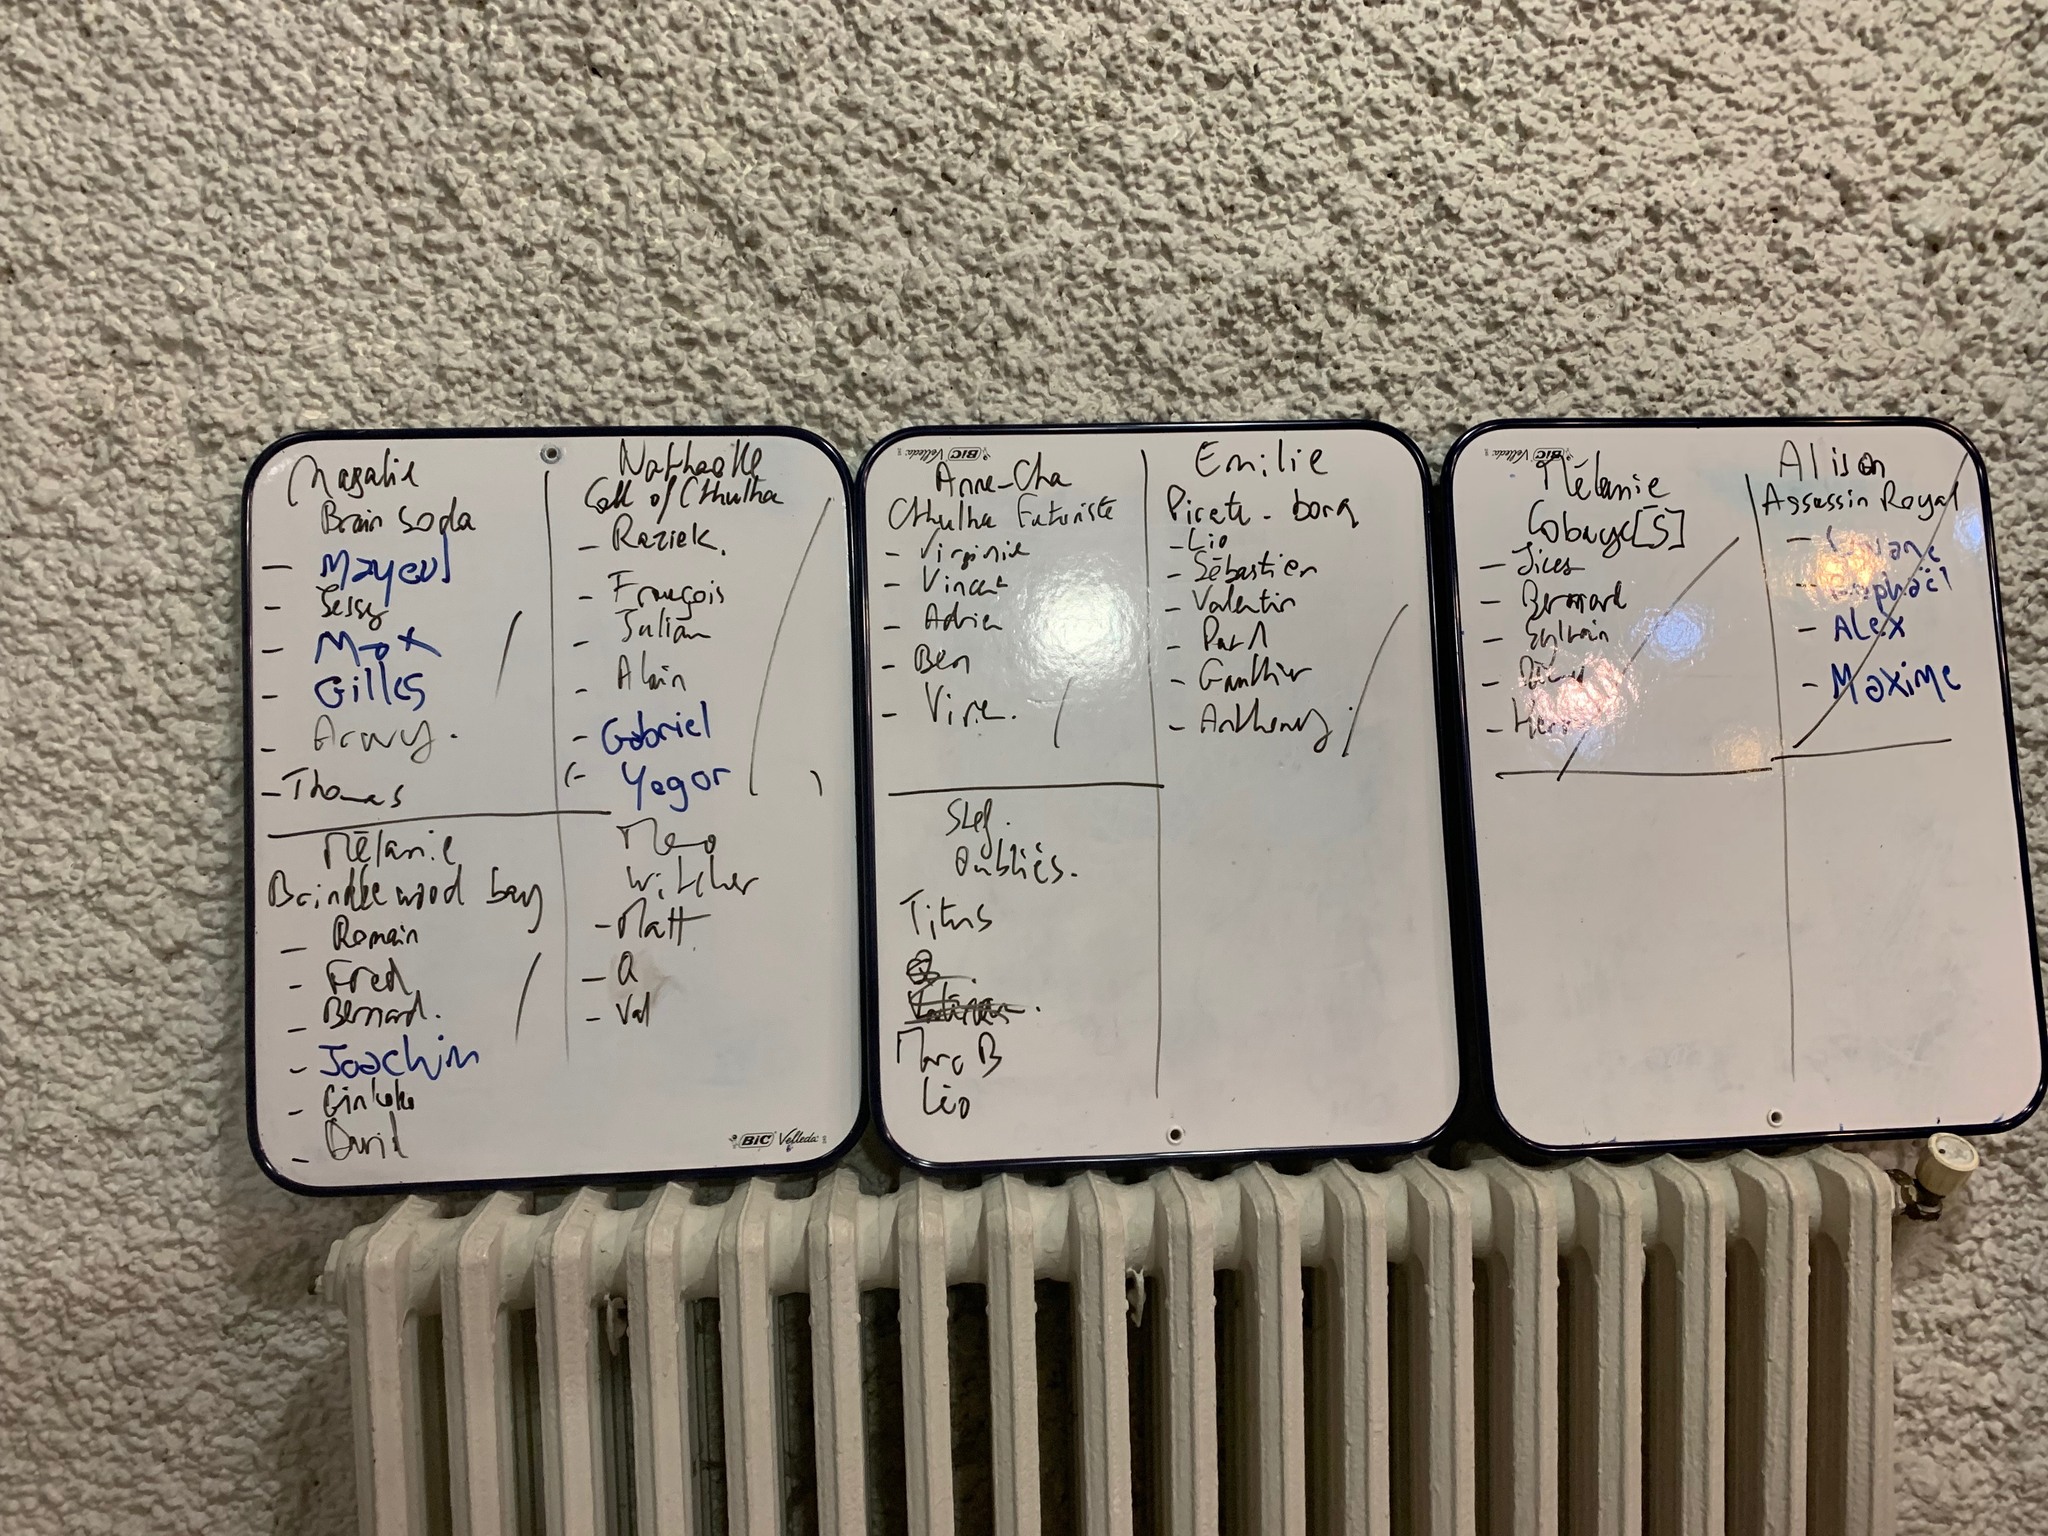 Magalie
Brain Soda
- Mayeul
- Jessy
- Max
- Gilles
-
- Thomas
Mélanie
Brindlewood bay
- Romain
- Fred
- Bernard.
- Joachim
- Ginkoko
- David
Nathaëlle
Call of Cthulhu
- Raziek.
- François
- Julian
- Alain
- Gabriel
(- Yegor )
Witcher
- Matt
- Q
- Val
BIC Velleda
BIC Velleda
Anne-Cha
Cthulhu Futuriste
- Virginie
- Vincent
- Adrien
- Ben
-
Stef.
Oubliés.
Titus
Marc B
Léo
Emilie
Pirate-borg
- Lio
- Sébastien
- Valentin
-
- Gauthier
- Anthony
BIC Velleda
Mélanie
Cobaye[S]
-
- Bernard
- Sylvain
-
-
Alison
Assassin Royal
-
- Raphaël
- Alex
- Maxime